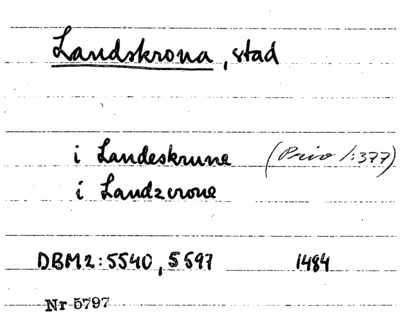 Landskrona, stad
i Landeskrune (Priv 1:377)
i Landzcrone
DBM2:5540, 5597 1484
Nr 5797